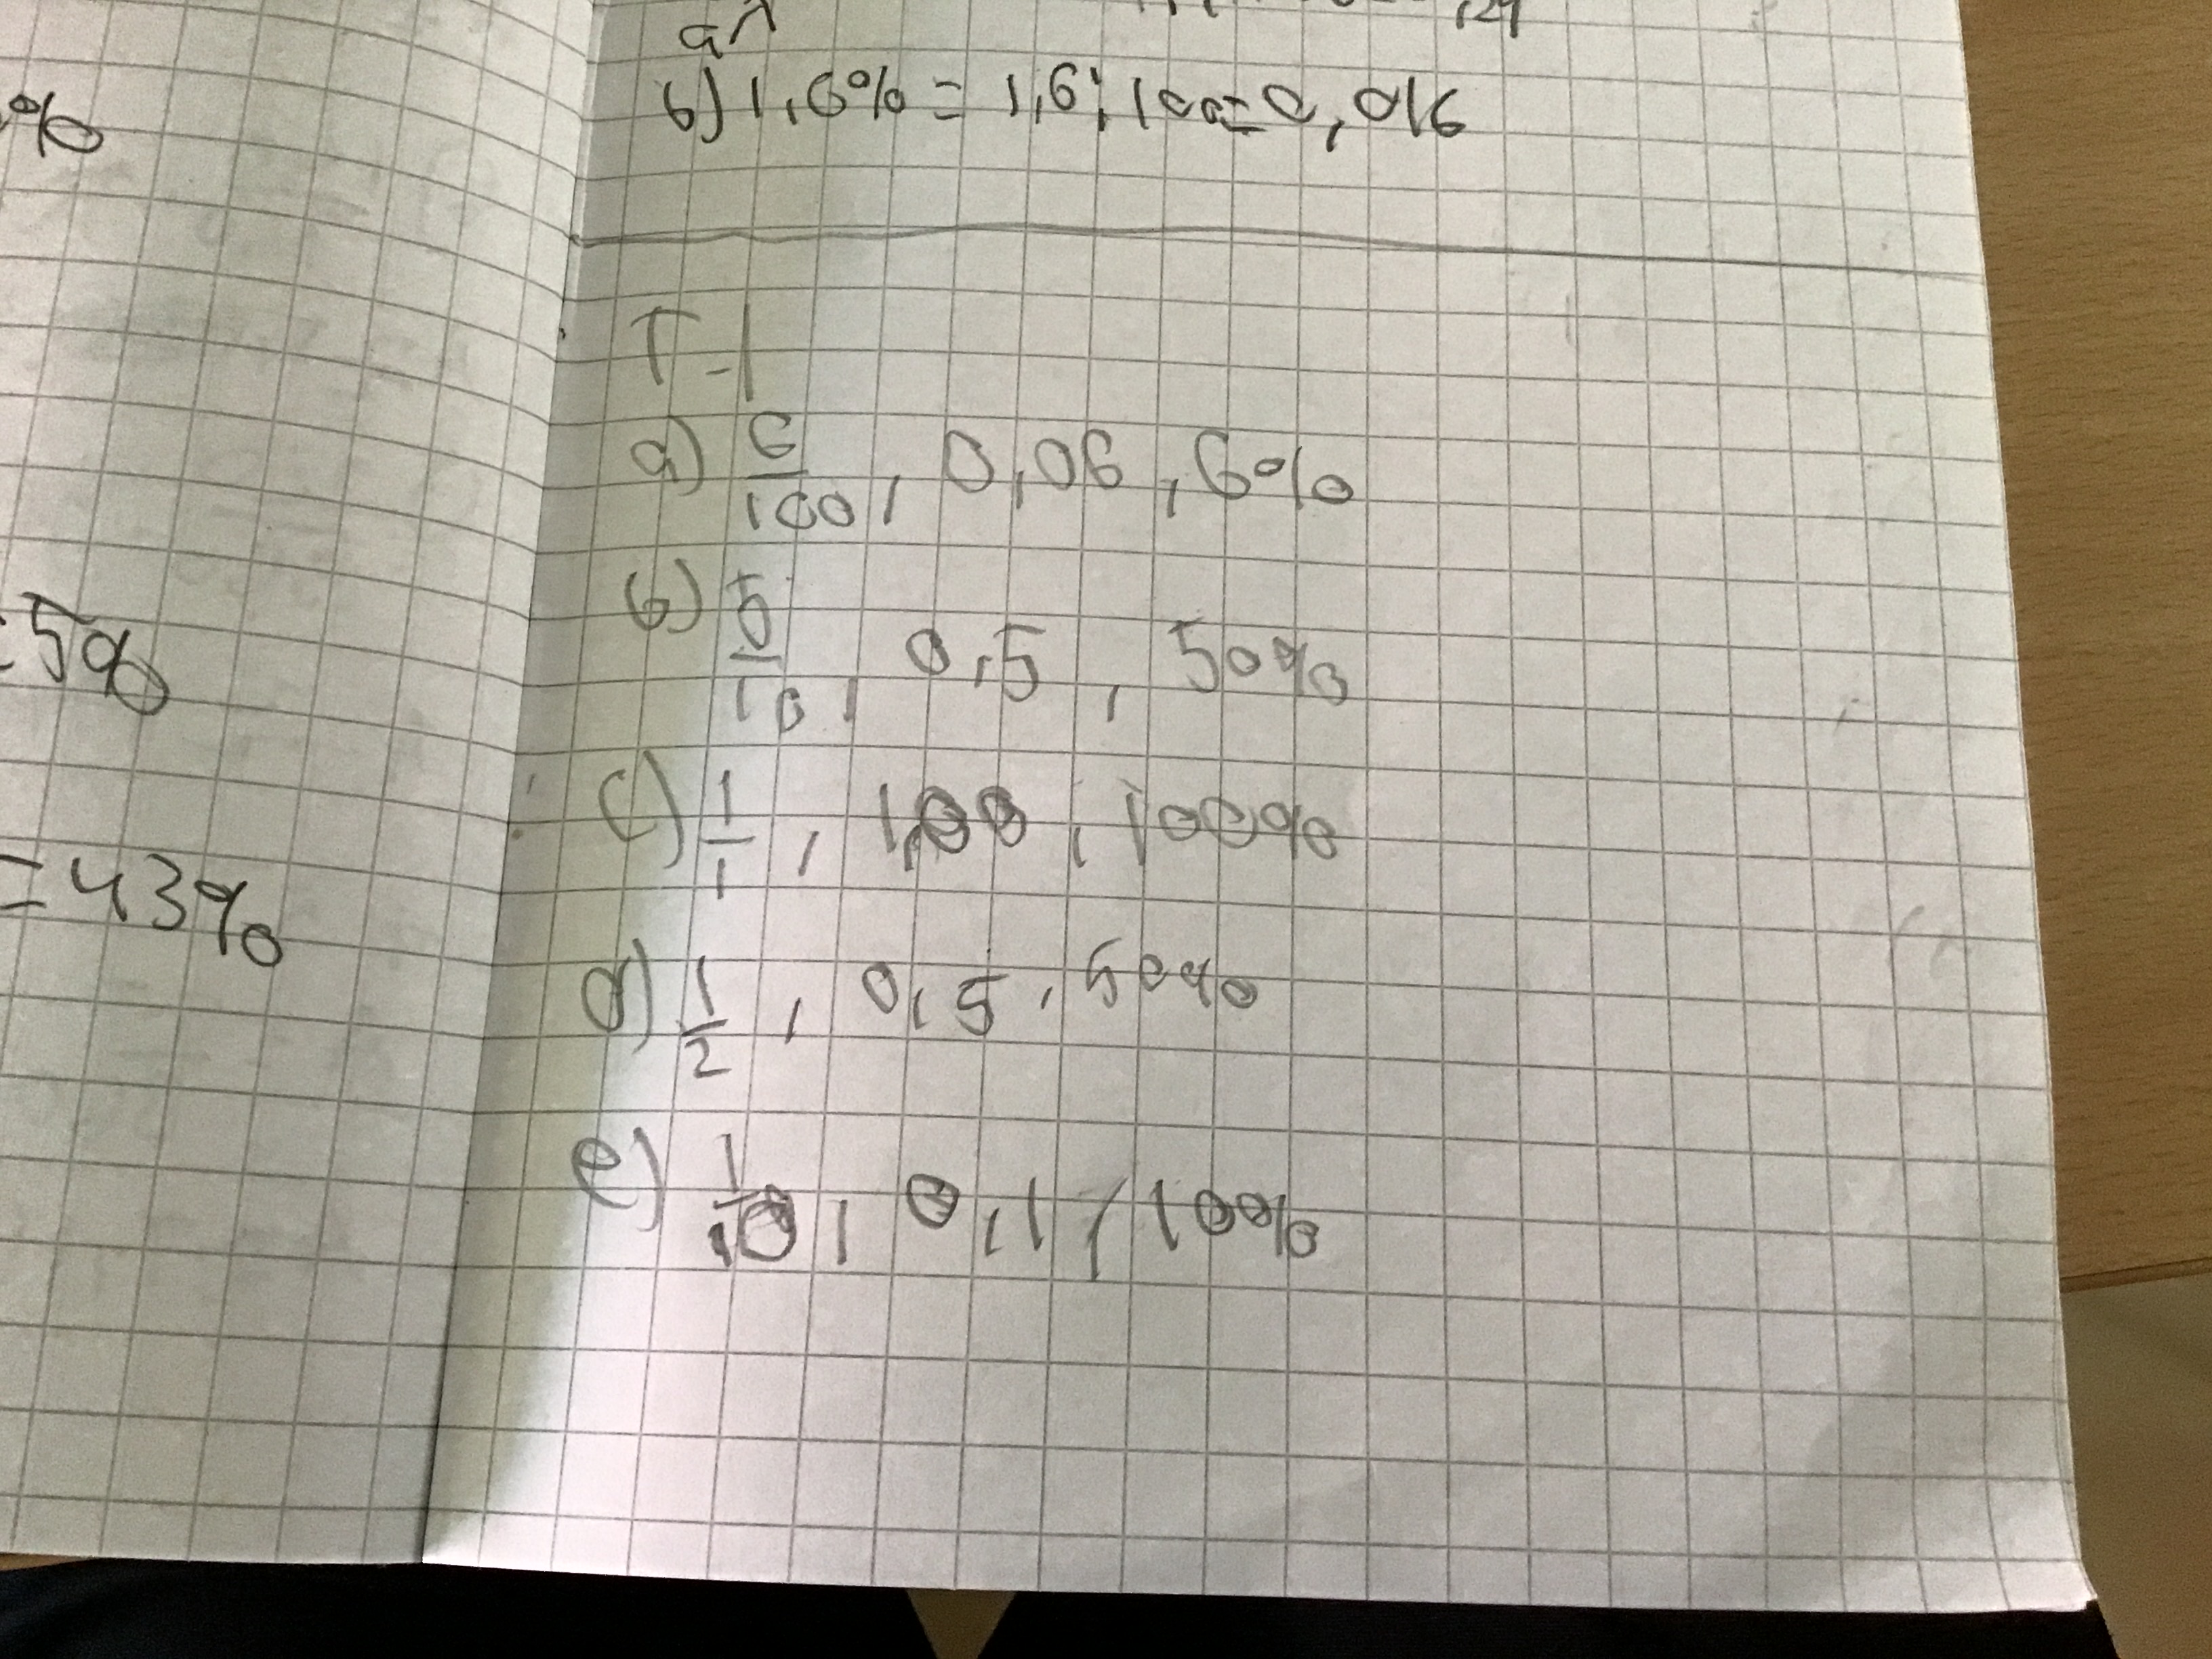 %
=5%
=43%
b) 1,6% = 1,6:100=0,016
T-1
a) 6/100, 0,06, 6%
b) 5/10, 0,5, 50%
c) 1/1, 1,00, 100%
d) 1/2, 0,5, 50%
e) 1/10, 0,1, 10%